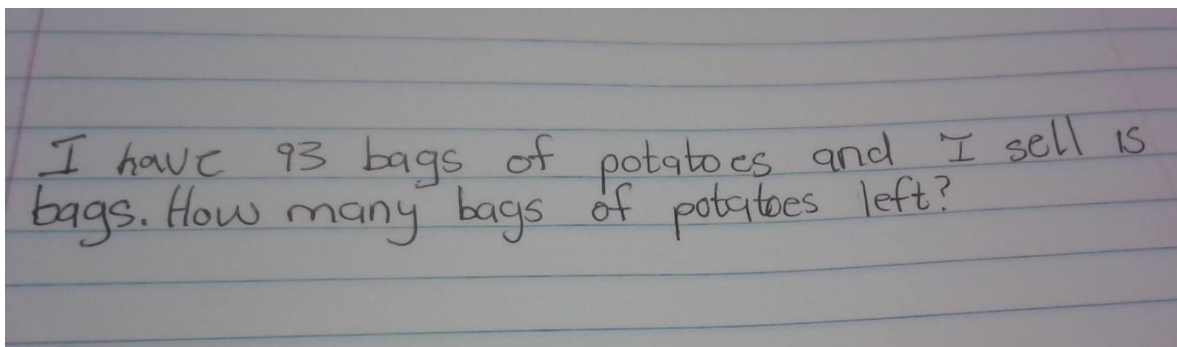 I have 93 bags of potatoes and I sell 15
bags. How many bags of potatoes left?